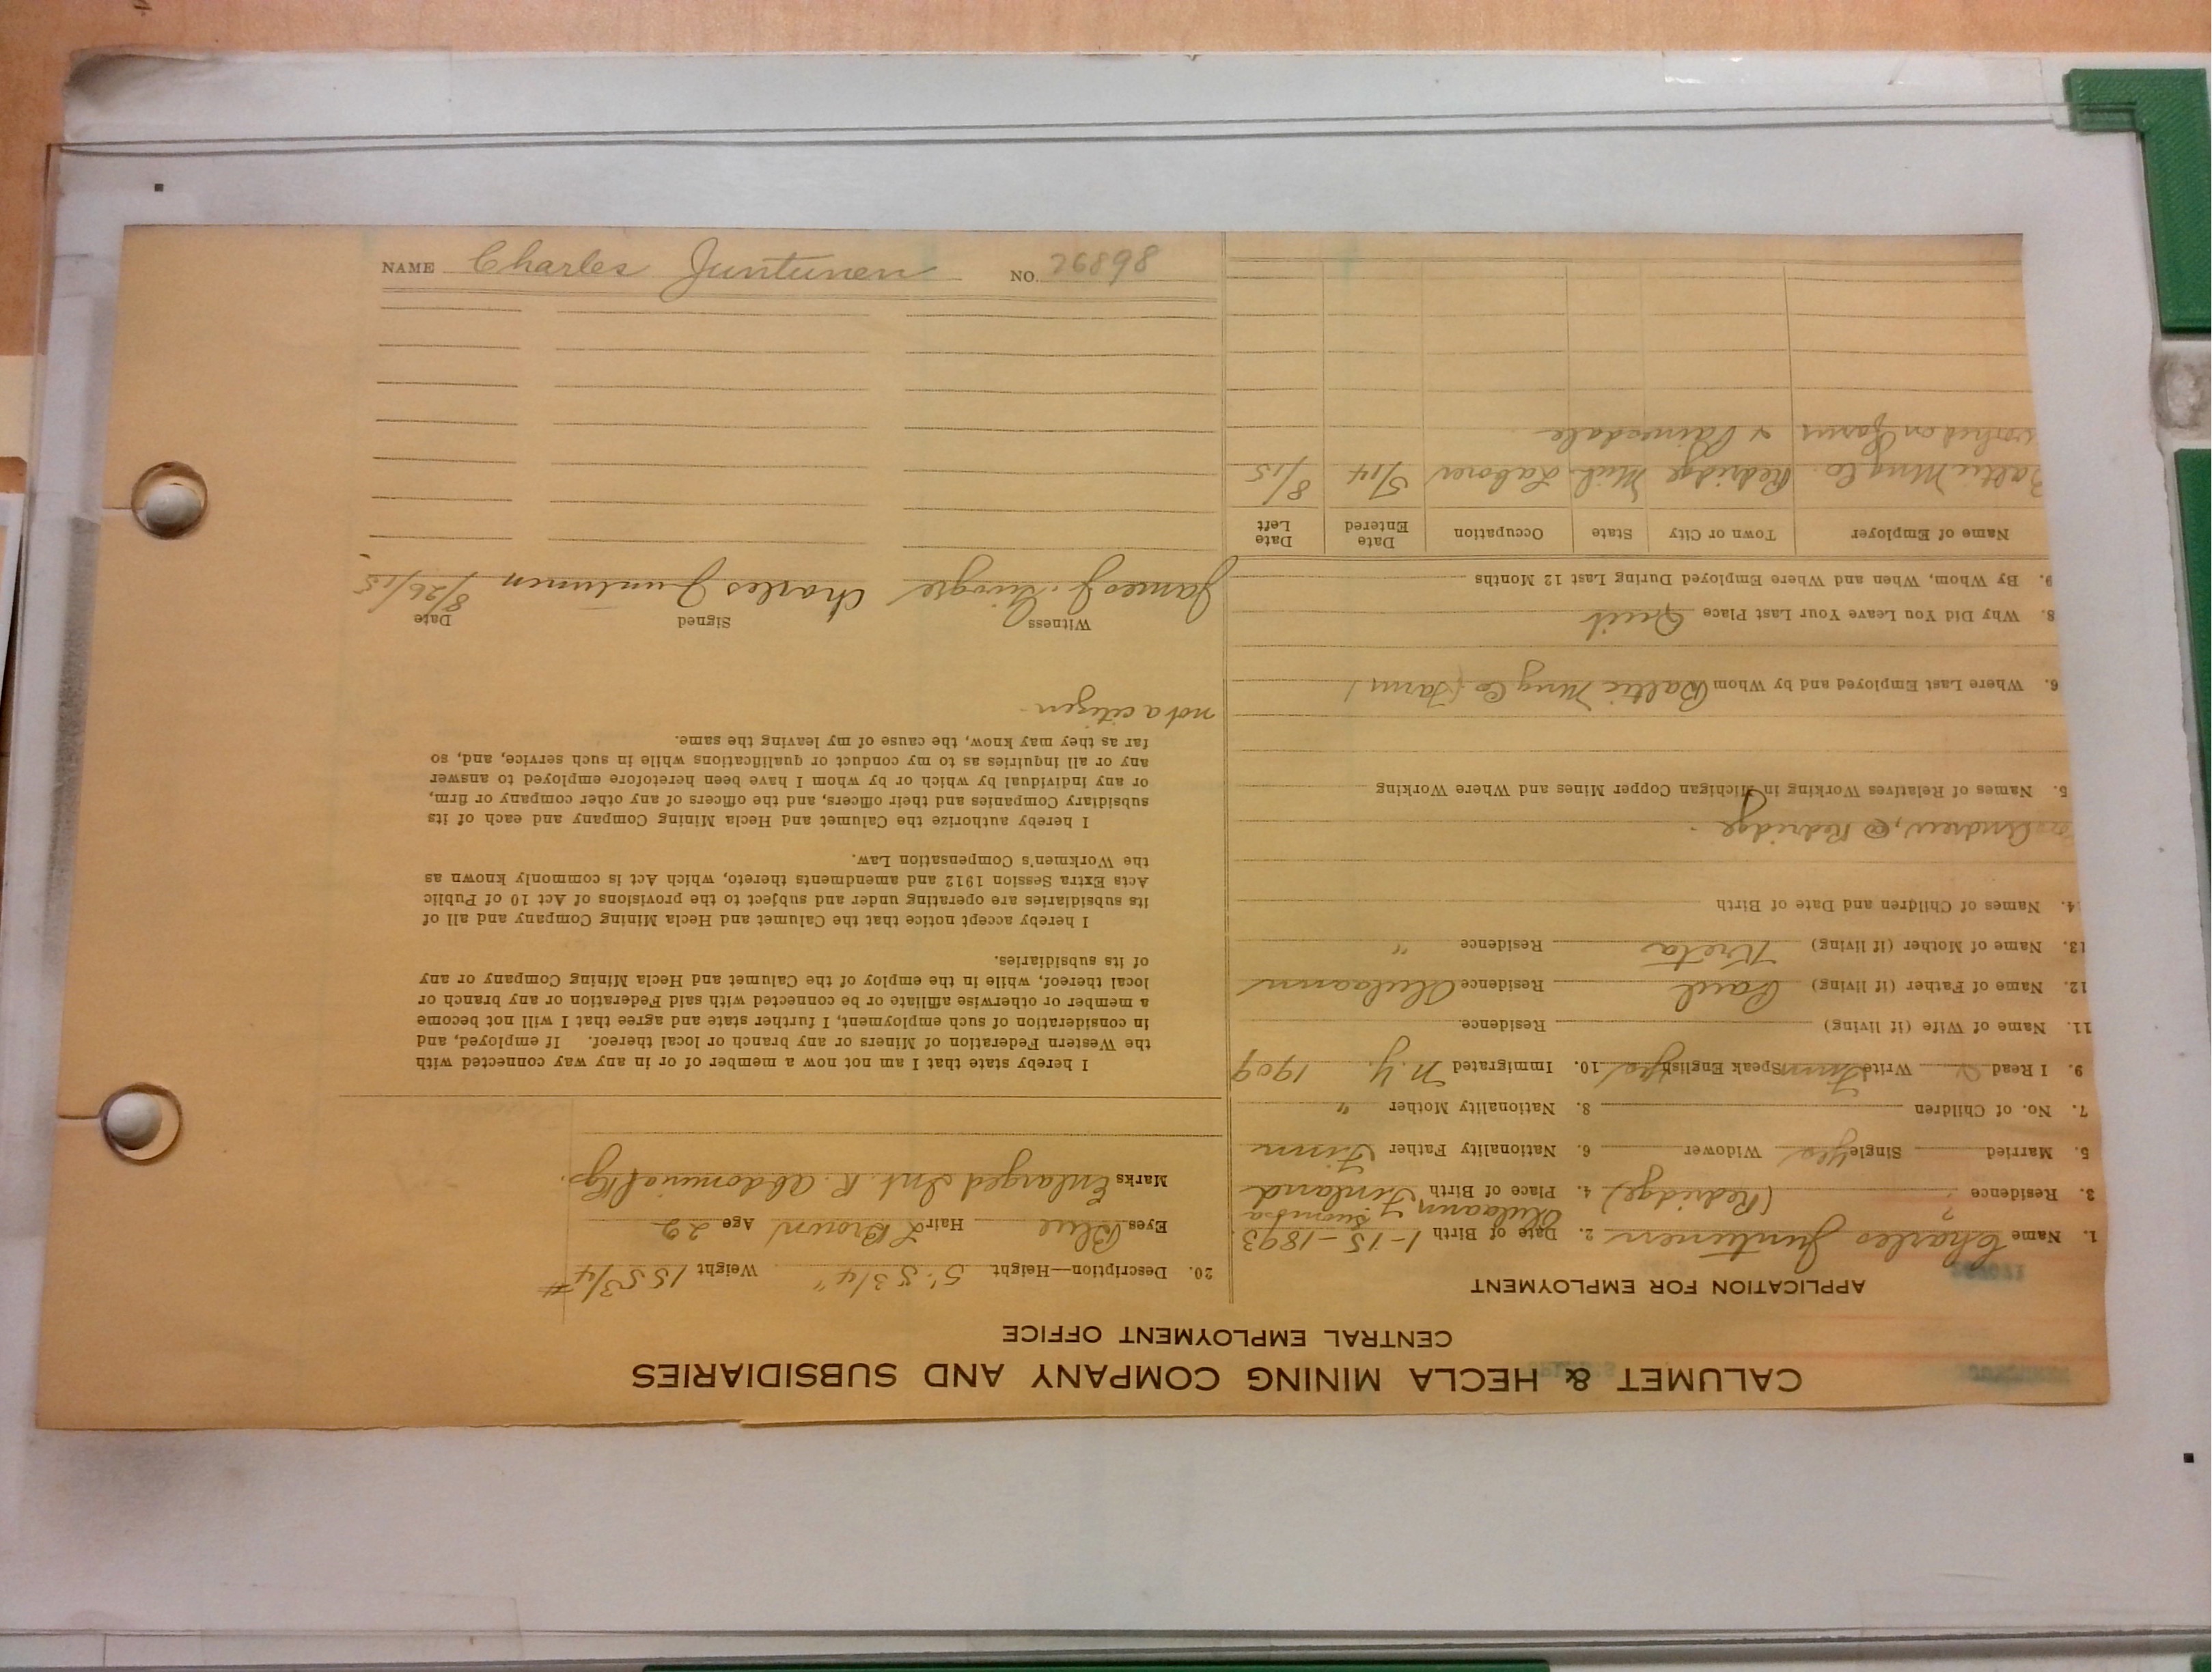 NAME Charles Juntunen NO. 26898
CALUMET & HECLA MINING COMPANY AND SUBSIDIARIES
CENTRAL EMPLOYMENT OFFICE
APPLICATION FOR EMPLOYMENT
1. Name Charles Juntunen 2. Date of Birth 1-15-1893
3. Residence ? (Redridge) 4. Place of Birth Finland
5. Married Single yes Widower 6. Nationality Father Finn
7. No. of Children 8. Nationality Mother "
9. I Read & Write Finn Speak English yes 10. Immigrated N.Y. 1909
11. Name of Wife (if living) Residence
12. Name of Father (if living) Paul Residence
13. Name of Mother (if living) Kreta Residence "
14. Names of Children and Date of Birth
Andrew, @ Redridge.
5. Names of Relatives Working in Michigan Copper Mines and Where Working
6. Where Last Employed and by Whom Baltic Mng Co (Farm)
8. Why Did You Leave Your Last Place Quit
9. By Whom, When and Where Employed During Last 12 Months
Name of Employer Town or City State Occupation Date Entered Date Left
Baltic Mng Co. Redridge Mich Laborer 5/14 8/15
worked on Farm & Painesdale
20. Description—Height 5'. 5 3/4" Weight 155 3/4 #
Eyes Blue Hair L Brown Age 22
Marks Enlarged Int. R. Abdominal Rg.
I hereby state that I am not now a member of or in any way connected with
the Western Federation of Miners or any branch or local thereof. If employed, and
in consideration of such employment, I further state and agree that I will not become
a member or otherwise affiliate or be connected with said Federation or any branch or
local thereof, while in the employ of the Calumet and Hecla Mining Company or any
of its subsidiaries.
I hereby accept notice that the Calumet and Hecla Mining Company and all of
its subsidiaries are operating under and subject to the provisions of Act 10 of Public
Acts Extra Session 1912 and amendments thereto, which Act is commonly known as
the Workmen's Compensation Law.
I hereby authorize the Calumet and Hecla Mining Company and each of its
subsidiary Companies and their officers, and the officers of any other company or firm,
or any individual by which or by whom I have been heretofore employed to answer
any or all inquiries as to my conduct or qualifications while in such service, and, so
far as they may know, the cause of my leaving the same.
not a citizen
Witness Signed Date
James J. Charles Juntunen 8/26/15